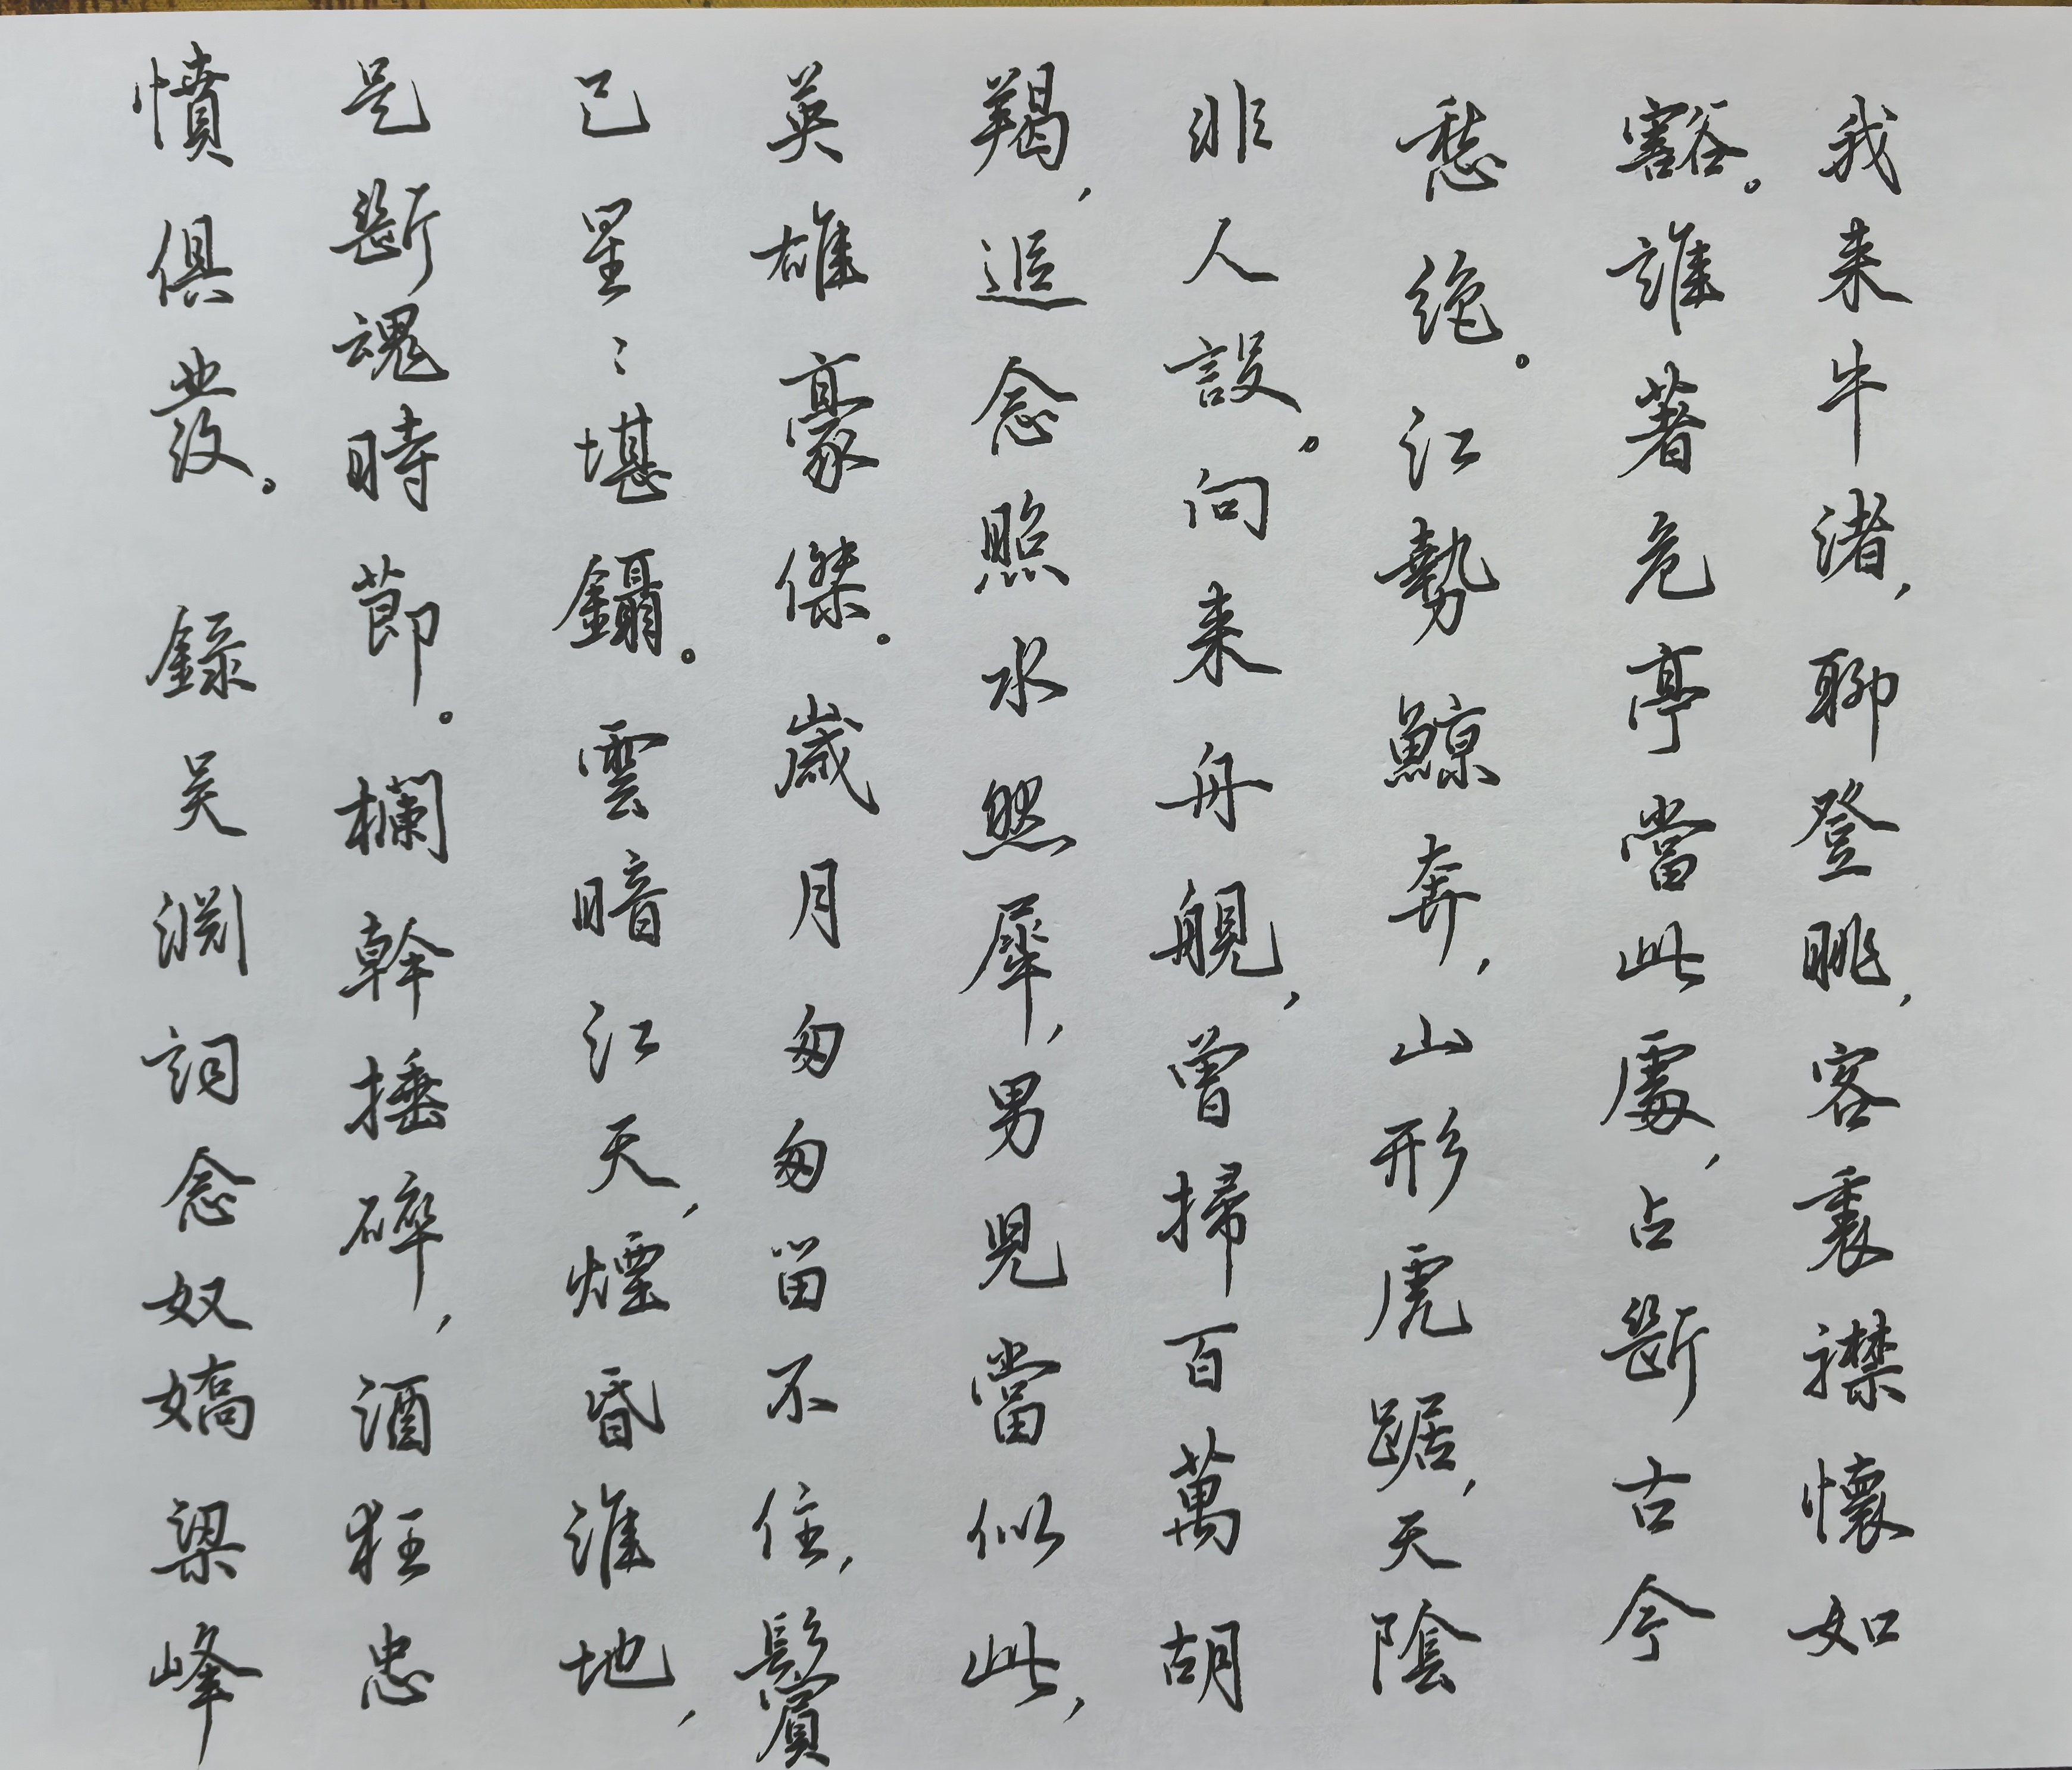 我来牛渚，聊登眺，客裏襟懷如
豁。誰著危亭當此處，占斷古今
愁絶。江勢鯨奔，山形虎踞，天陰
非人設。向来舟艦，曾掃百萬胡
羯，追念照水然犀，男兒當似此，
英雄豪傑。歲月匆匆留不住，鬢
已星〻堪鑷。雲暗江天，煙昏淮地，
是斷魂時節。欄幹捶碎，酒狂忠
憤俱發。 錄吴淵詞念奴嬌梁峰